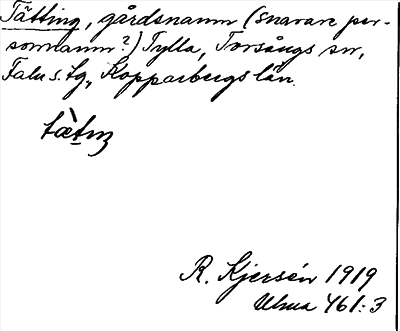 Tätting, gårdsnamn (snarare per-
sonnamn?) Tylla, Torsångs sn,
Falu s. lg., Kopparbergs län.
R. Kjersén 1919
Ulma 461:3